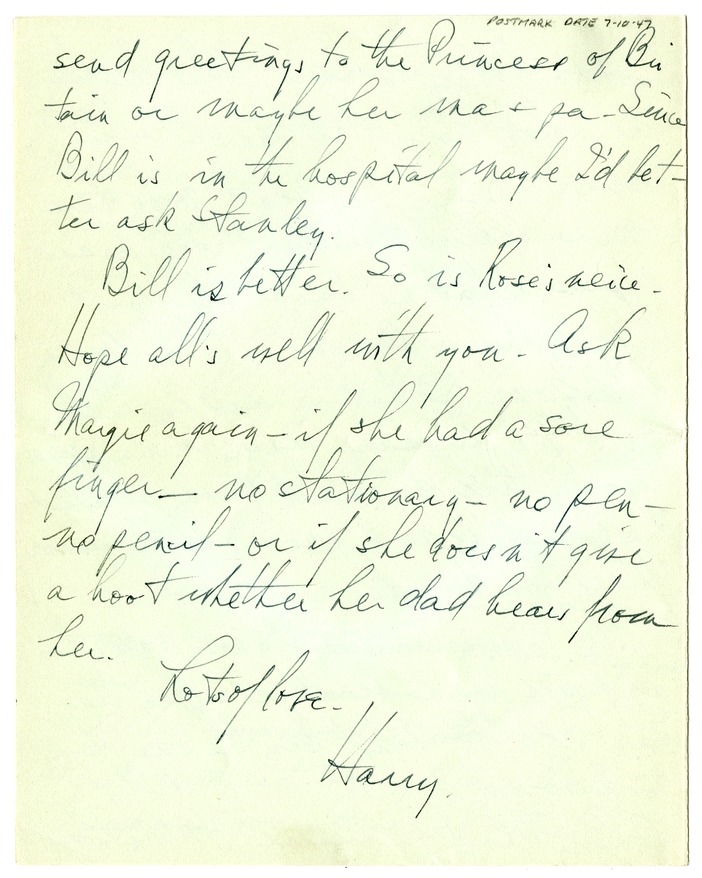 POSTMARK DATE 7-10-47
send greetings to the Princess of Bri
tain or maybe her ma + pa - Since
Bill is in the hospital maybe I'd bet-
ter ask Stanley.
Bill is better. So is Rose's neice -
Hope all's well with you - Ask
Margie again - if she had a sore
finger - no stationary - no pen -
no pencil - or if she doesn't give
a hoot whether her dad hears from
her.
Lots of love -
Harry.